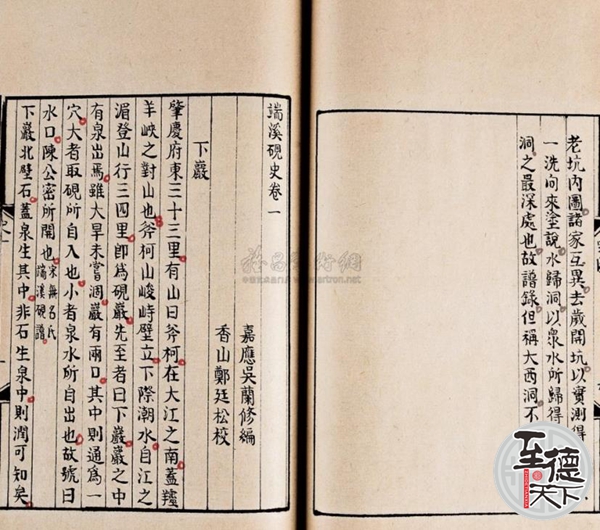 老坑內圖諸家互異去歲開坑以實測得
一洗向來塗說水歸洞以眾水所歸得
洞之最深處也故譜錄但稱大西洞不
端溪硯史卷一
嘉應吳蘭修編
香山鄭廷松校
下巖
肇慶府東三十三里有山曰斧柯在大江之南蓋
羊峽之對山也斧柯山峻峙壁立下際潮水自江之
湄登山行三四里即為硯巖先至者曰下巖巖之中
有泉出焉雖大旱未嘗涸巖有兩口其中則通為一
穴大者取硯所自入也小者泉水所自出也故號曰
水口陳公密所開也宋無名氏
端溪硯譜
下巖北壁石蓋泉生其中非石生泉中則潤可知矣
至德天下